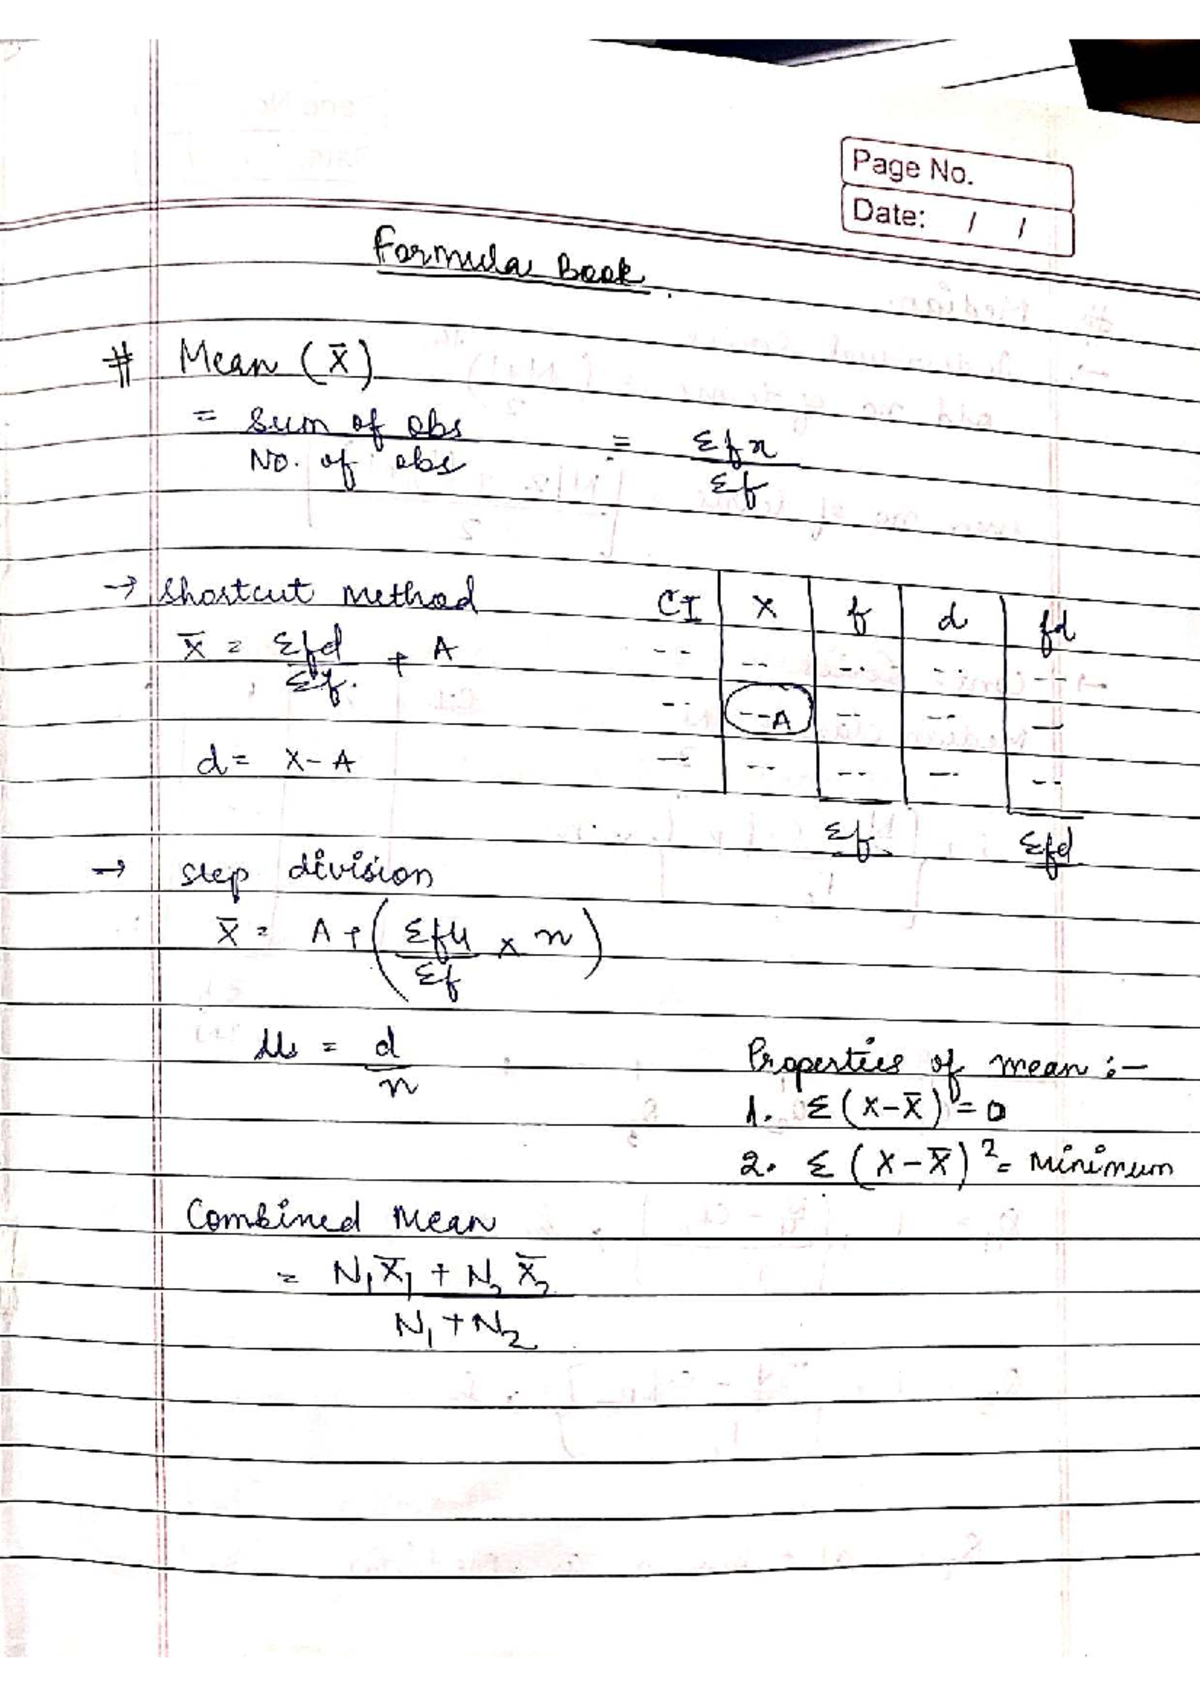 Page No.
Date: / /
Formula Book.
# Mean (x̄)
= Sum of obs / No. of obs = Σfx / Σf
→ Shortcut Method
x̄ = Σfd / Σf + A
d = x - A
CI | x | f | d | fd
-- | -- | -- | -- | --
-- | --A | -- | -- | --
-- | -- | -- | -- | --
Σf Σfd
→ Step division
x̄ = A + (Σfu / Σf × n)
u = d / n
Properties of mean :-
1. Σ(x-x̄) = 0
2. Σ(x-x̄)² = Minimum
Combined Mean
= N₁x̄₁ + N₂x̄₂ / N₁+N₂